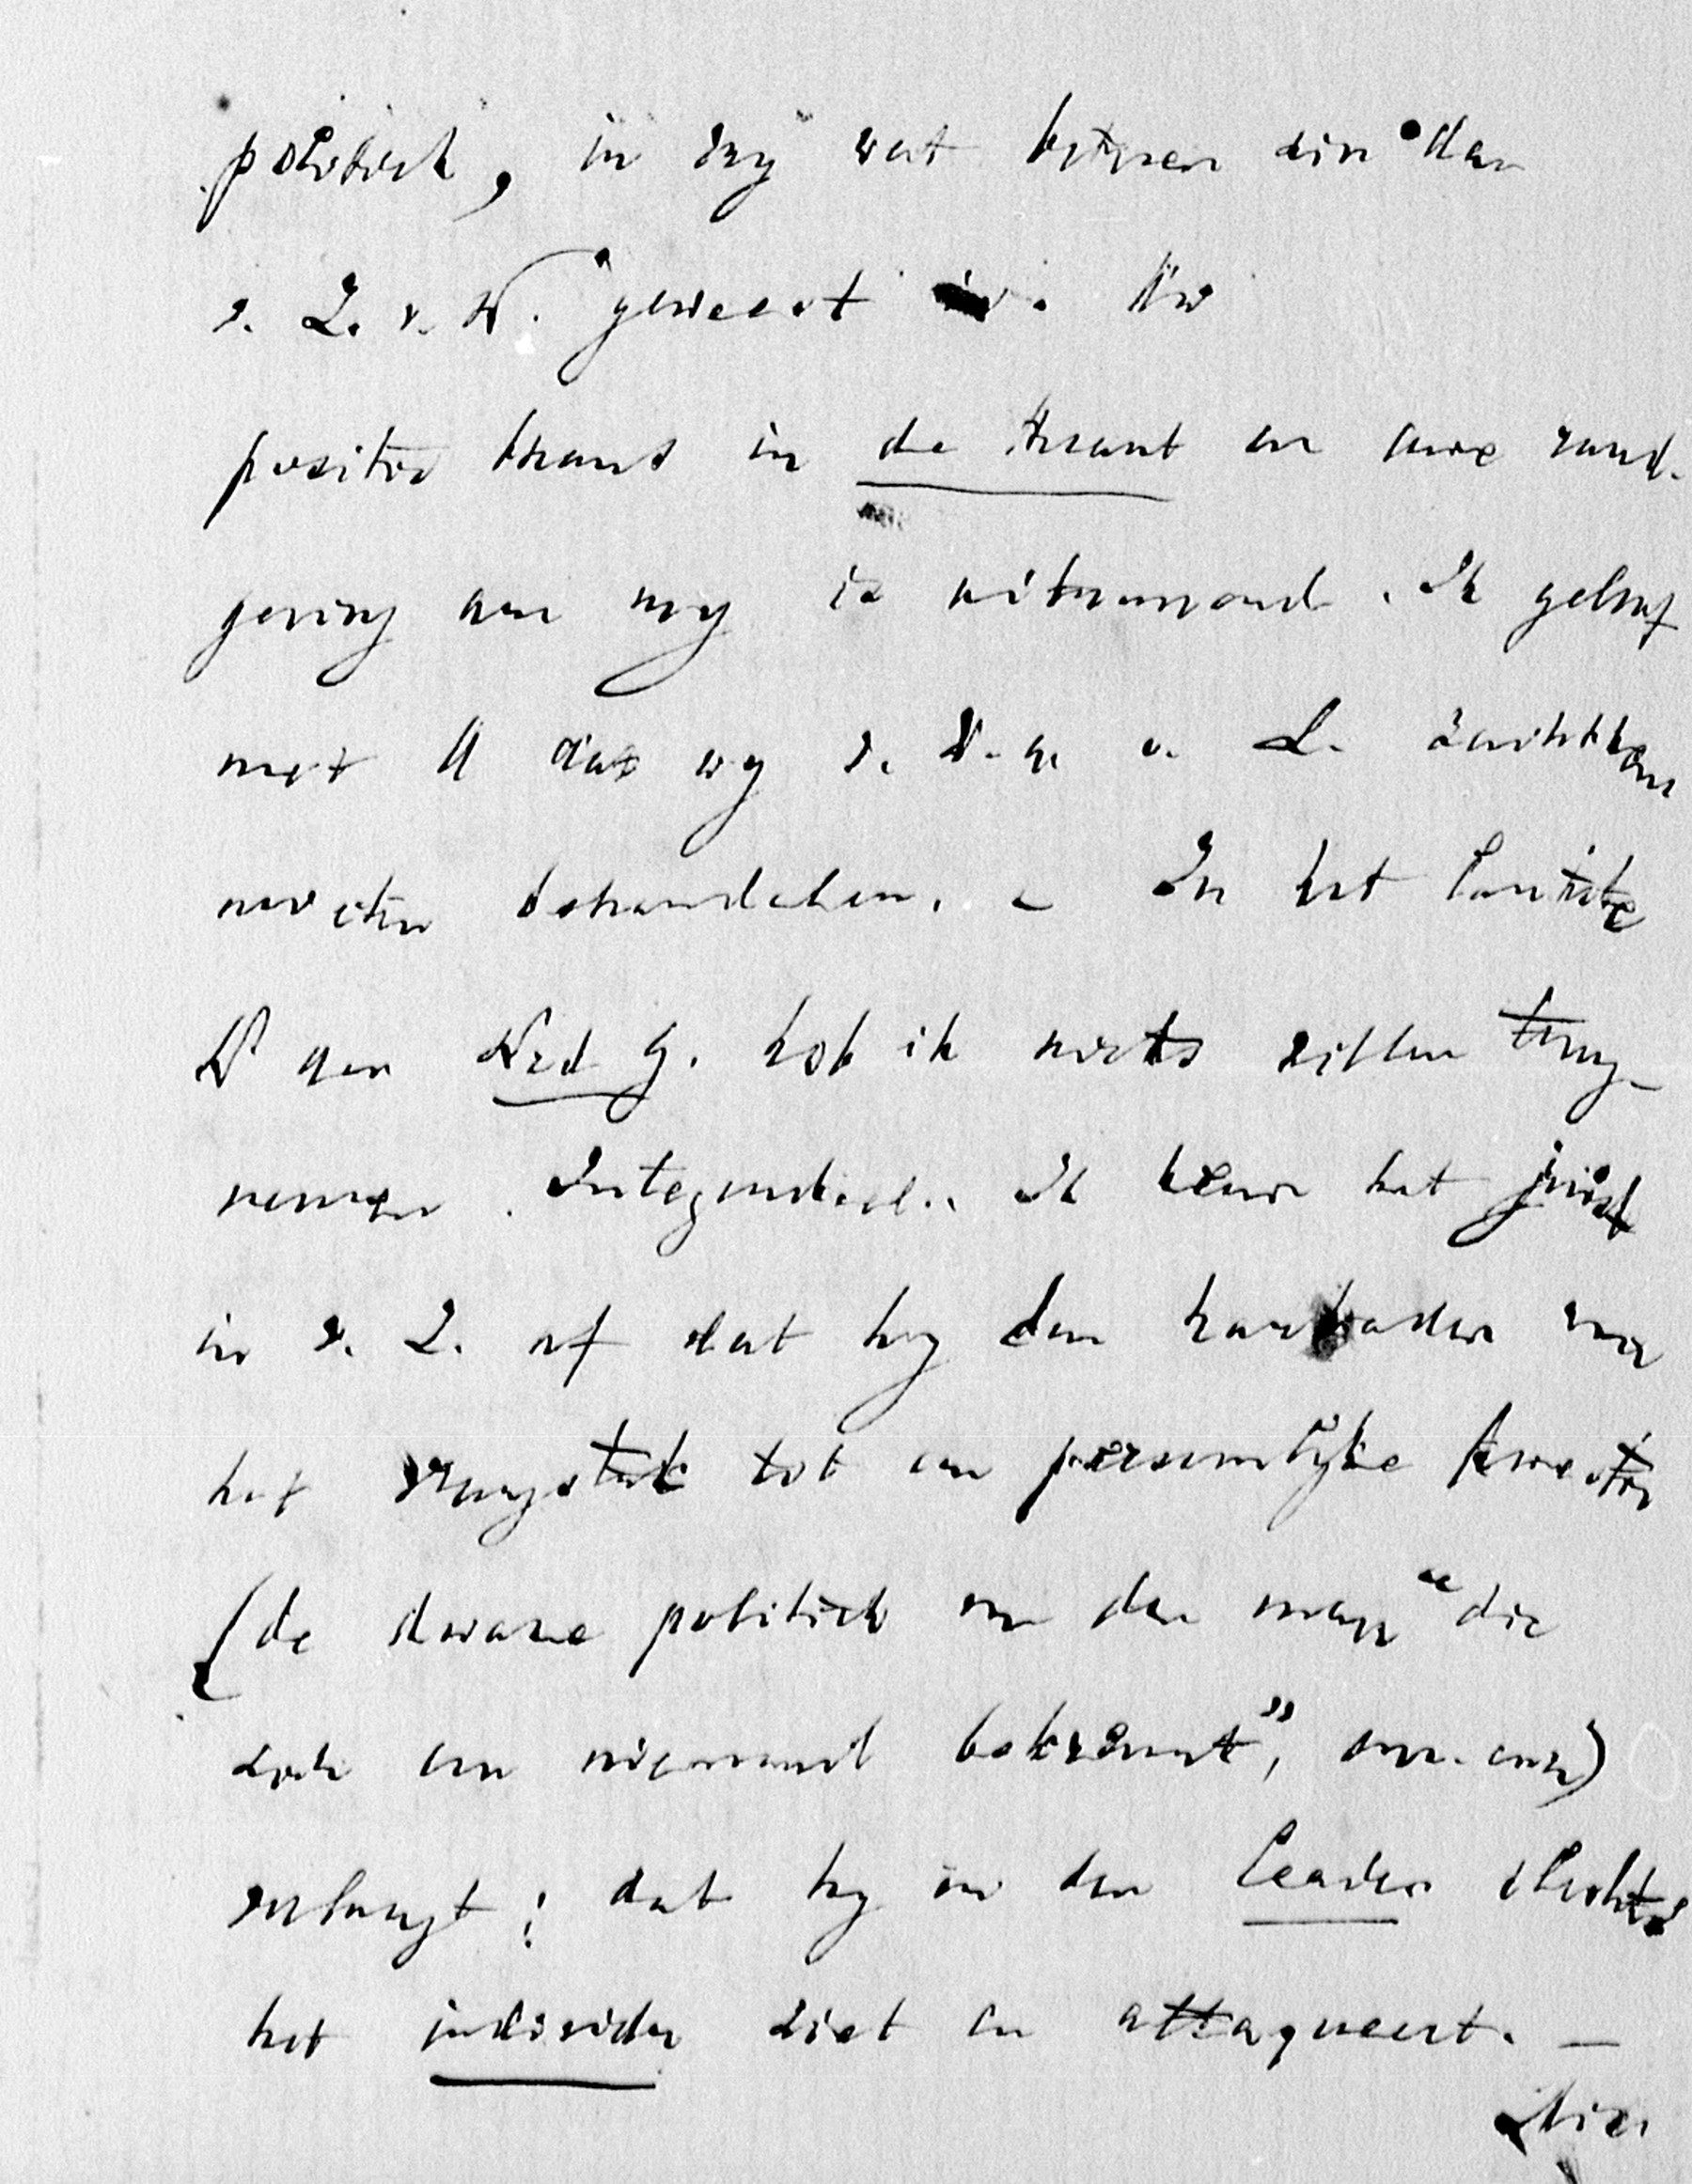 politiek, in zij wat binnen dien dan
v. L. v. N. geweest is. Uw
positie thans in de Krant en uwe rand-
gering aan mij is uitmuntend. Ik geloof
met U dat wij v. D. G. v. L. zacht
moeten behandelen. – In het laatste
N° van Ned G. heb ik niets willen terug-
nemen. Integendeel. Ik keur het juist
in v. L. af dat hij den
het vraagstuk tot een persoonlijke kwestie
(de dwaze politiek van den man "die
zich om niemand bekreunt", enz. enz)
verlaagt; dat hij in den Leader slechts
het individu ziet en attaqueert. –